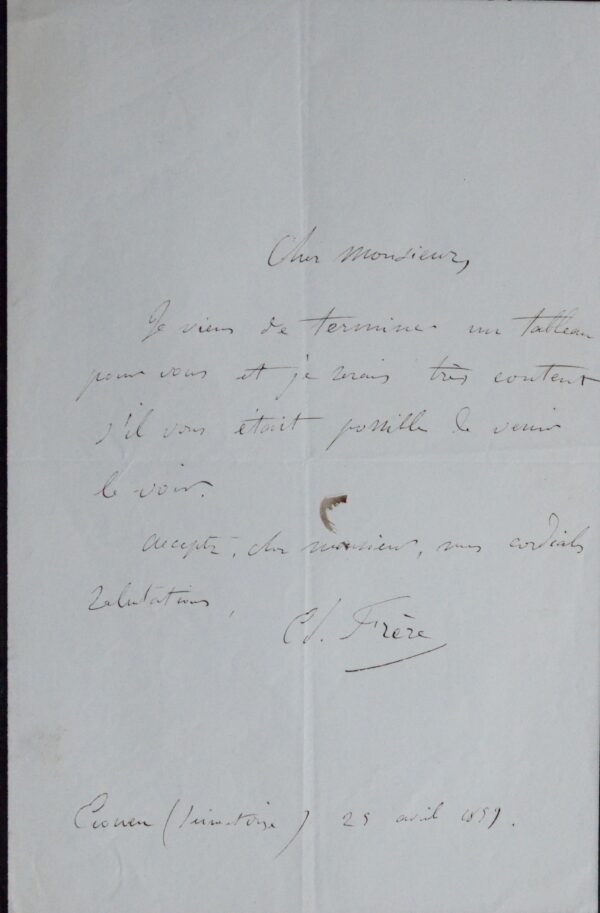 Cher Monsieur,
Je viens de terminer un tableau
pour vous et je serais très content
s'il vous était possible de venir
le voir.
Acceptez, cher monsieur, mes cordiales
salutations,
Ed. Frère
Ecouen (Seine et Oise) avril